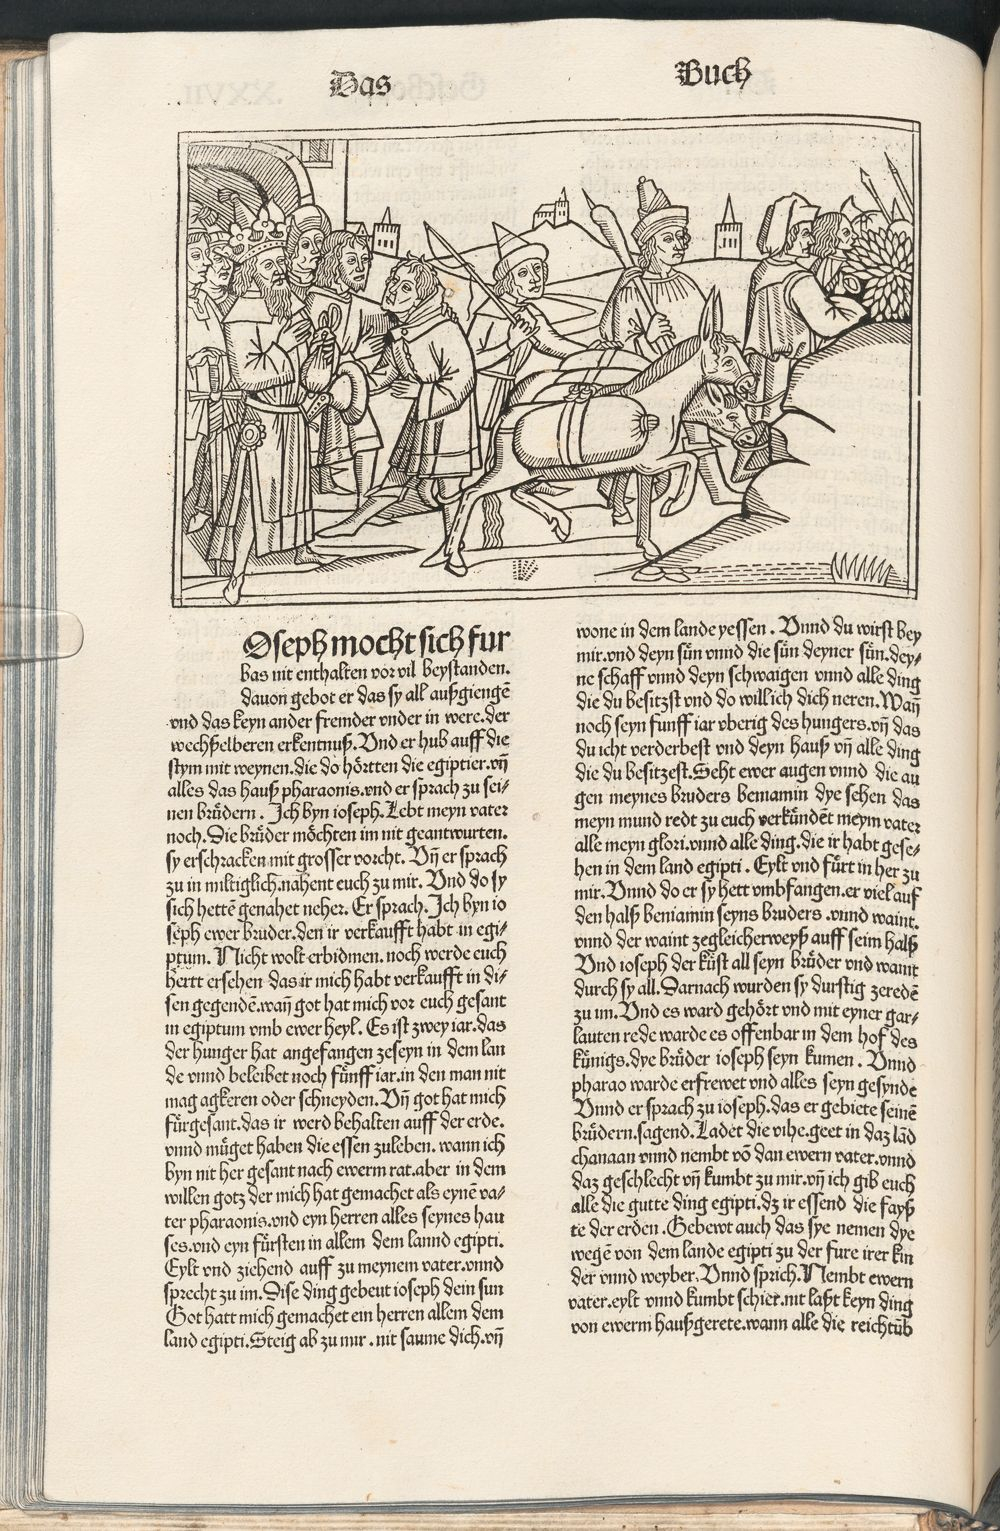 Das Buch
Oseph mocht sich fur
bas nit enthalten vor vil beystanden.
dauon gebot er das sy all außgiengẽ
vnd das keyn ander fremder vnder in were.der
wechßelberen erkentnuß.Vnd er hub auff die
stym mit weynen.die do hoͤrtten die egiptier.vñ
alles das hauß pharaonis.vnd er sprach zu sei⸗
nen bruͤdern . Jch byn ioseph.Lebt meyn vater
noch.Die bruͤder moͤchten im nit geantwurten.
sy erschracken mit grosser vorcht. Vñ er sprach
zu in miltiglich.nahent euch zu mir. Vnd do sy
sich hettẽ genahet neher. Er sprach. Jch byn io
seph ewer bruder.den ir verkaufft habt in egi⸗
ptum. Nicht wolt erbidmen. noch werde euch
hertt ersehen das ir mich habt verkaufft in di⸗
sen gegendẽ.wañ got hat mich vor euch gesant
in egiptum vmb ewer heyl. Es ist zwey iar.das
der hunger hat angefangen zeseyn in dem lan
de vnnd beleibet noch fuͤnff iar.in den man nit
mag agkeren oder schneyden.Vñ got hat mich
fuͤrgesant.das ir werd behalten auff der erde.
vnnd muͤget haben die essen zuleben. wann ich
byn nit her gesant nach ewerm rat.aber in dem
willen gotz der mich hat gemachet als eynẽ va⸗
ter pharaonis.vnd eyn herren alles seynes hau
ses.vnd eyn fuͤrsten in allem dem lannd egipti.
Eylt vnd ziehend auff zu meynem vater.vnnd
sprecht zu im.Dise ding gebeut ioseph dein sun
Got hatt mich gemachet ein herren allem dem
land egipti.Steig ab zu mir . nit saume dich.vñ
wone in dem lande yessen . Vnnd du wirst bey
mir.vnd deyn suͤn vnnd die suͤn deyner suͤn.dey⸗
ne schaff vnnd deyn schwaigen vnnd alle ding
die du besitzst vnd do will ich dich neren.Wañ
noch seyn funff iar vberig des hungers.vñ das
du icht verderbest vnd deyn hauß vñ alle ding
die du besitzest.Seht ewer augen vnnd die au
gen meynes bruders beniamin dye sehen das
meyn mund redt zu euch verkuͤndẽt meym vater
alle meyn glori.vnnd alle ding.die ir habt gese⸗
hen in dem land egipti . Eylt vnd fuͤrt in her zu
mir. Vnnd do er sy hett vmbfangen.er viel auf
den halß beniamin seyns bruders .vnnd waint.
vnnd der waint zegleicherweyß auff seim halß
Vnd ioseph der kuͤst all seyn bruͤder vnd waint
durch sy all.Darnach wurden sy durstig zeredẽ
zu im.Vnd es ward gehoͤrt vnd mit eyner gar⸗
lauten rede warde es offenbar in dem hof des
kuͤnigs.dye bruͤder ioseph seyn kumen . Vnnd
pharao warde erfrewet vnd alles seyn gesynde
Vnnd er sprach zu ioseph.das er gebiete seinẽ
bruͤdern.sagend.Ladẽt die vihe.geet in daz lãd
chanaan vnnd nembt võ dan ewern vater.vnnd
daz geschlecht vñ kumbt zu mir.vñ ich gib euch
alle die gutte ding egipti.dz ir essend die fayß
te der erden .Gebewt auch das sye nemen dye
wegẽ von dem lande egipti zu der fure irer kin
der vnnd weyber.Vnnd sprich.Nembt ewern
vater.eylt vnnd kumbt schier.nit laßt keyn ding
von ewerm haußgerete.wann alle die reichtũb